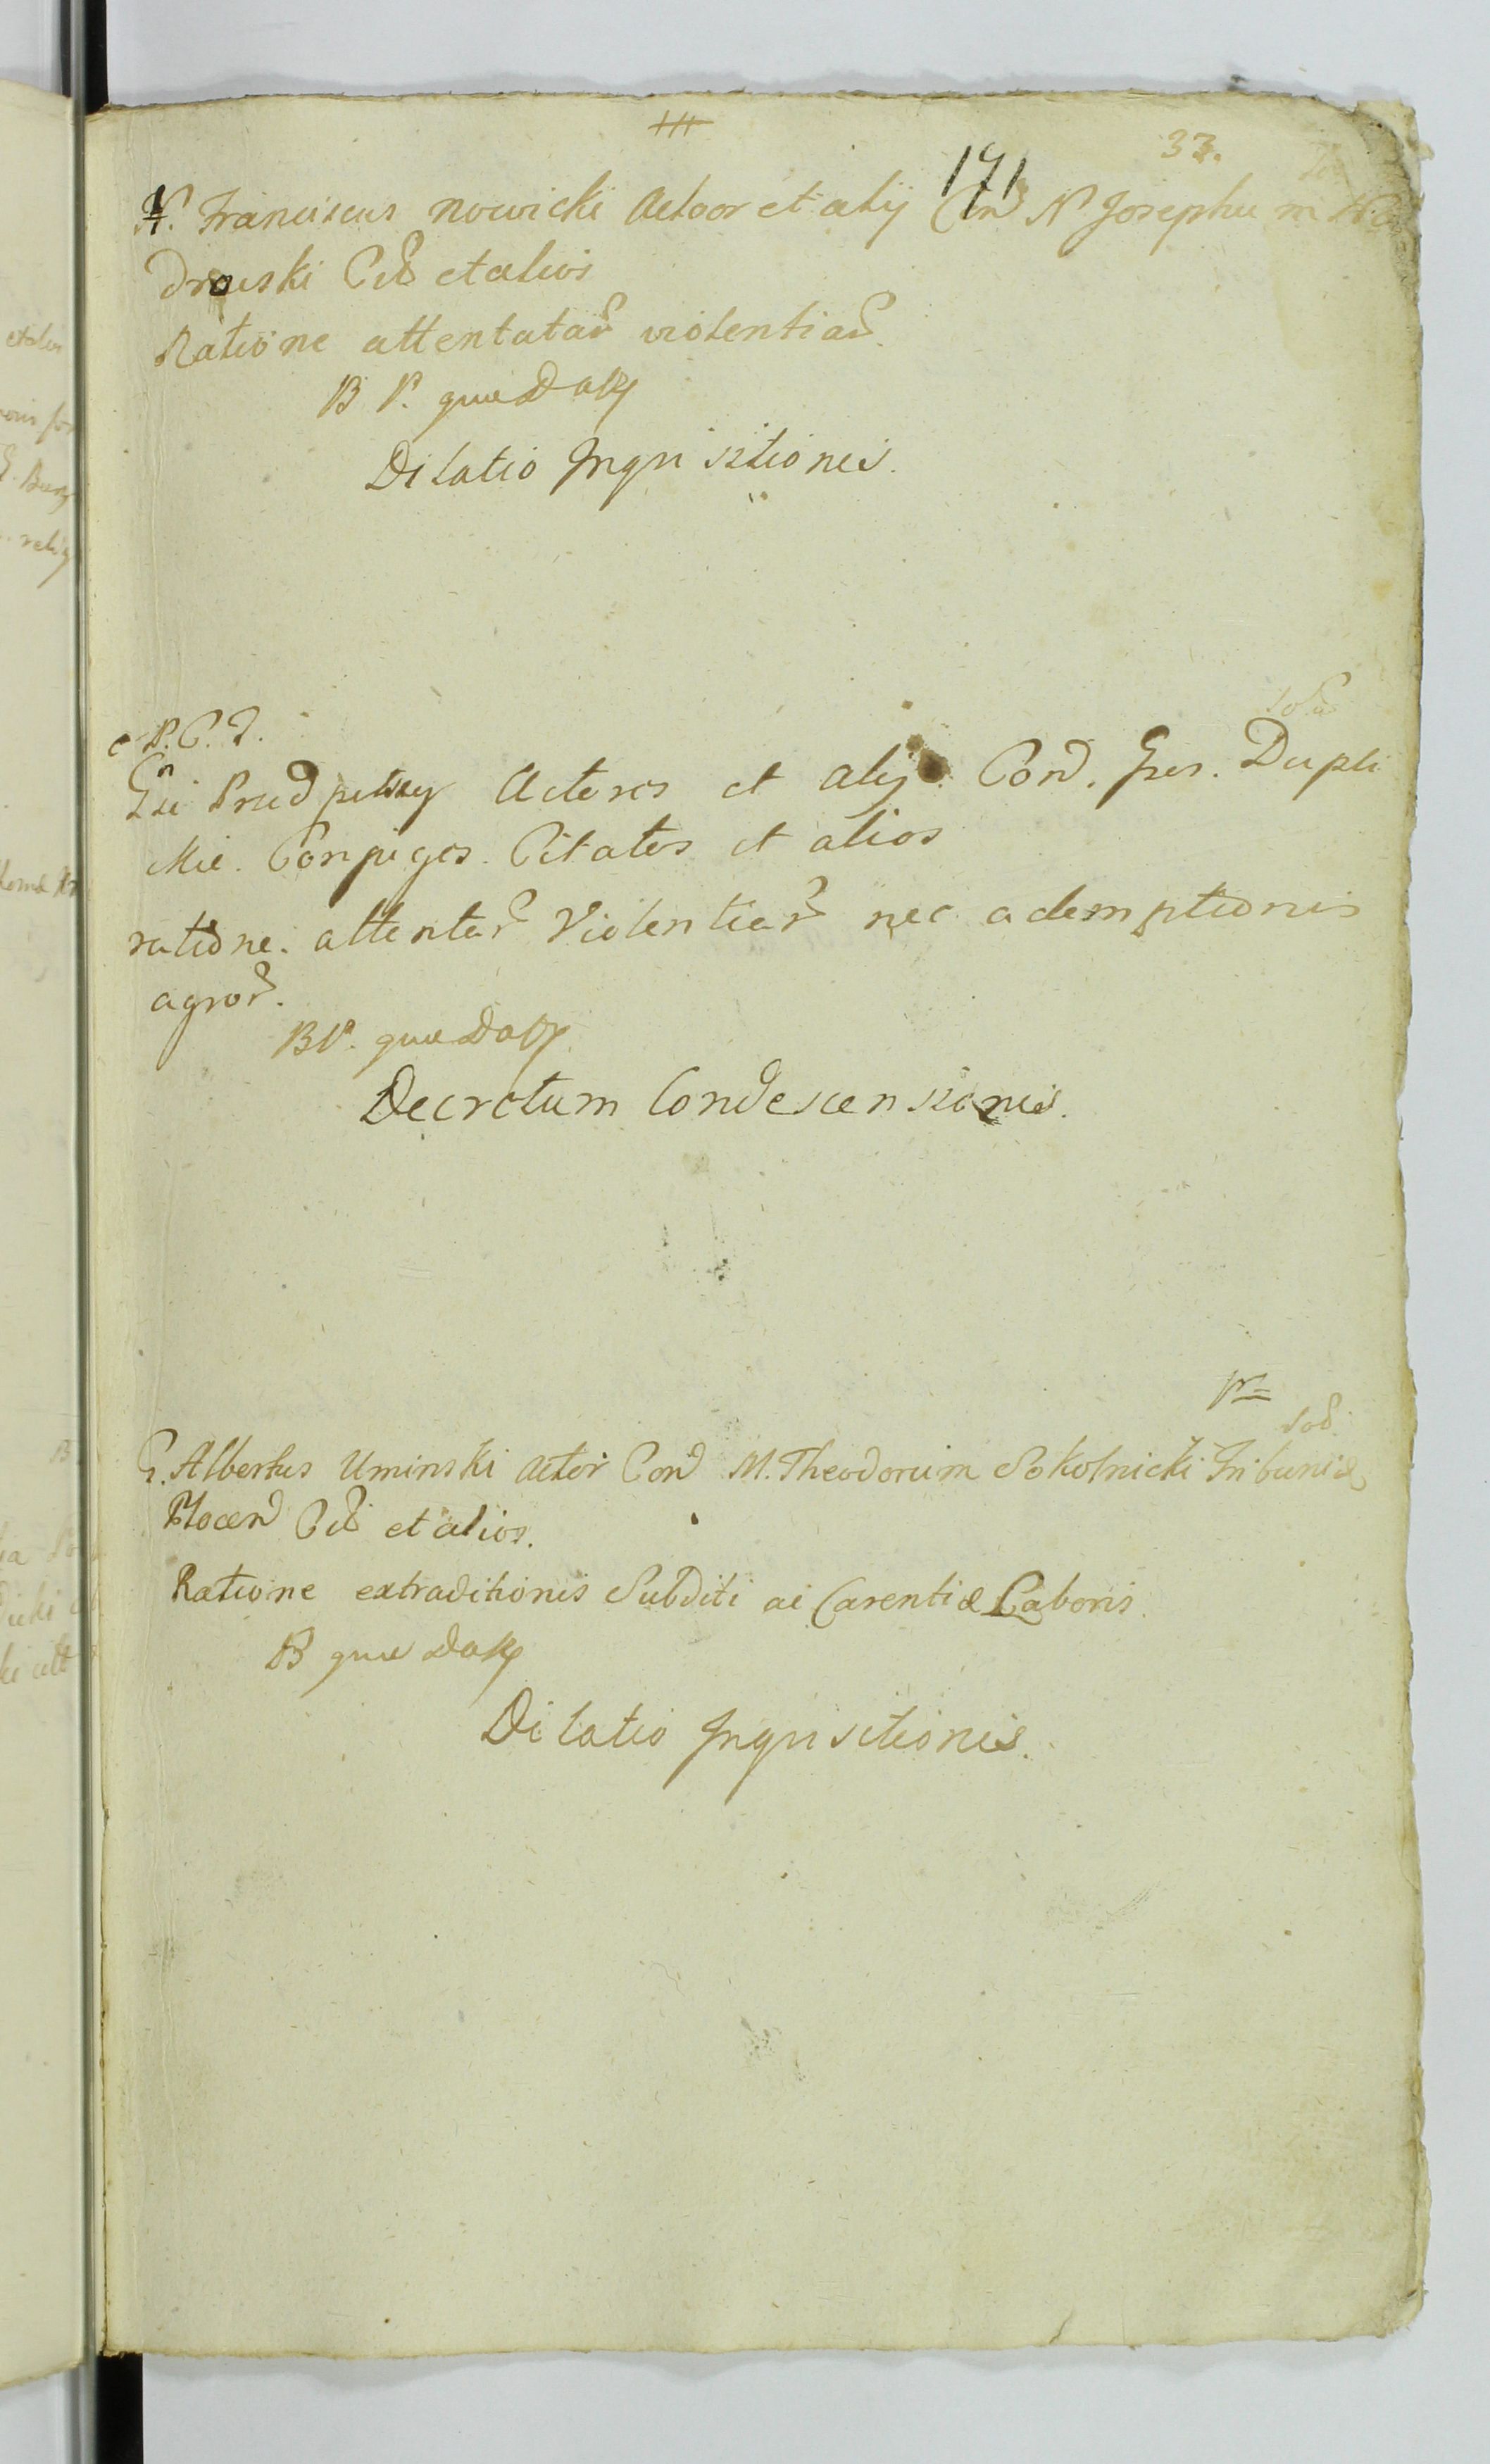 33.
171
N. Franciscus Nowicki Actor et alij Con̄d N Josephum
drowski Cit̄ et alios
Ratione attentatar̄ violentiar̄.
B P. quæd
Dilatio Inquisitionis.
P. C. T.
Actores et alij Con̄d. Gres. Dupli
Mie. Conjuges. Citatos et alios
ratione. attentar̄ Violentiar̄ nec ademptionis
agror̄.
BP. quæd
Decretum Condescensionis.
G. Albertus Uminski Actor Con̄d M. Theodorum Sokolnicki Tribunid
Plocen̄ Cit̄ et alios.
Ratione extraditionis Subditi ac Carentiæ Laboris.
B quæ
Dilatio Inquisitionis.